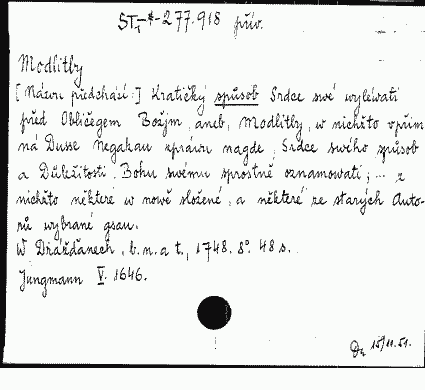 ST,-*-277.918 přív.
Modlitby
[Názvu předchází:] Kratičký spůsob Srdce swé wyléwati
před Obličegem Božjm, aneb, Modlitby, w nichžto vpřim
ná Dusse negakau zpráwu nagde, Srdce swého spůsob
a Důležitosti, Bohu swému sprostně oznamowati; ... z
nichžto některé w nowě složené, a některé ze starých Auto-
rů wybrané gsau.
W Drážďanech, b. n. a t., 1748. 8°. 48 s.
Jungmann V. 1646.
Du 15/11.51.